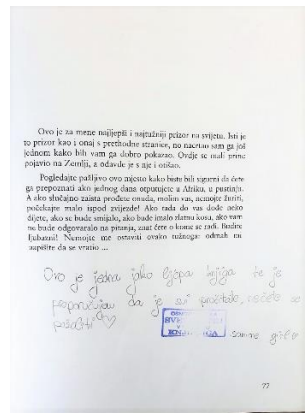 Ovo je za mene najljepši i najtužniji prizor na svijetu. Isti je
to prizor kao i onaj s prethodne stranice, no nacrtao sam ga još
jednom kako bih vam ga dobro pokazao. Ovdje se mali princ
pojavio na Zemlji, a odavde je s nje i otišao.
Pogledajte pažljivo ovo mjesto kako biste bili sigurni da ćete
ga prepoznati ako jednog dana otputujete u Afriku, u pustinju.
A ako slučajno zaista prođete onuda, molim vas, nemojte žuriti,
počekajte malo ispod zvijezde! Ako tada do vas dođe neko
dijete, ako se bude smijalo, ako bude imalo zlatnu kosu, ako vam
ne bude odgovaralo na pitanja, znat ćete o kome se radi. Budite
ljubazni! Nemojte me ostaviti ovako tužnoga: odmah mi
napišite da se vratio ...
Ovo je jedna jako lijepa knjiga te je
preporučujem da je svi pročitate, nećete se
77